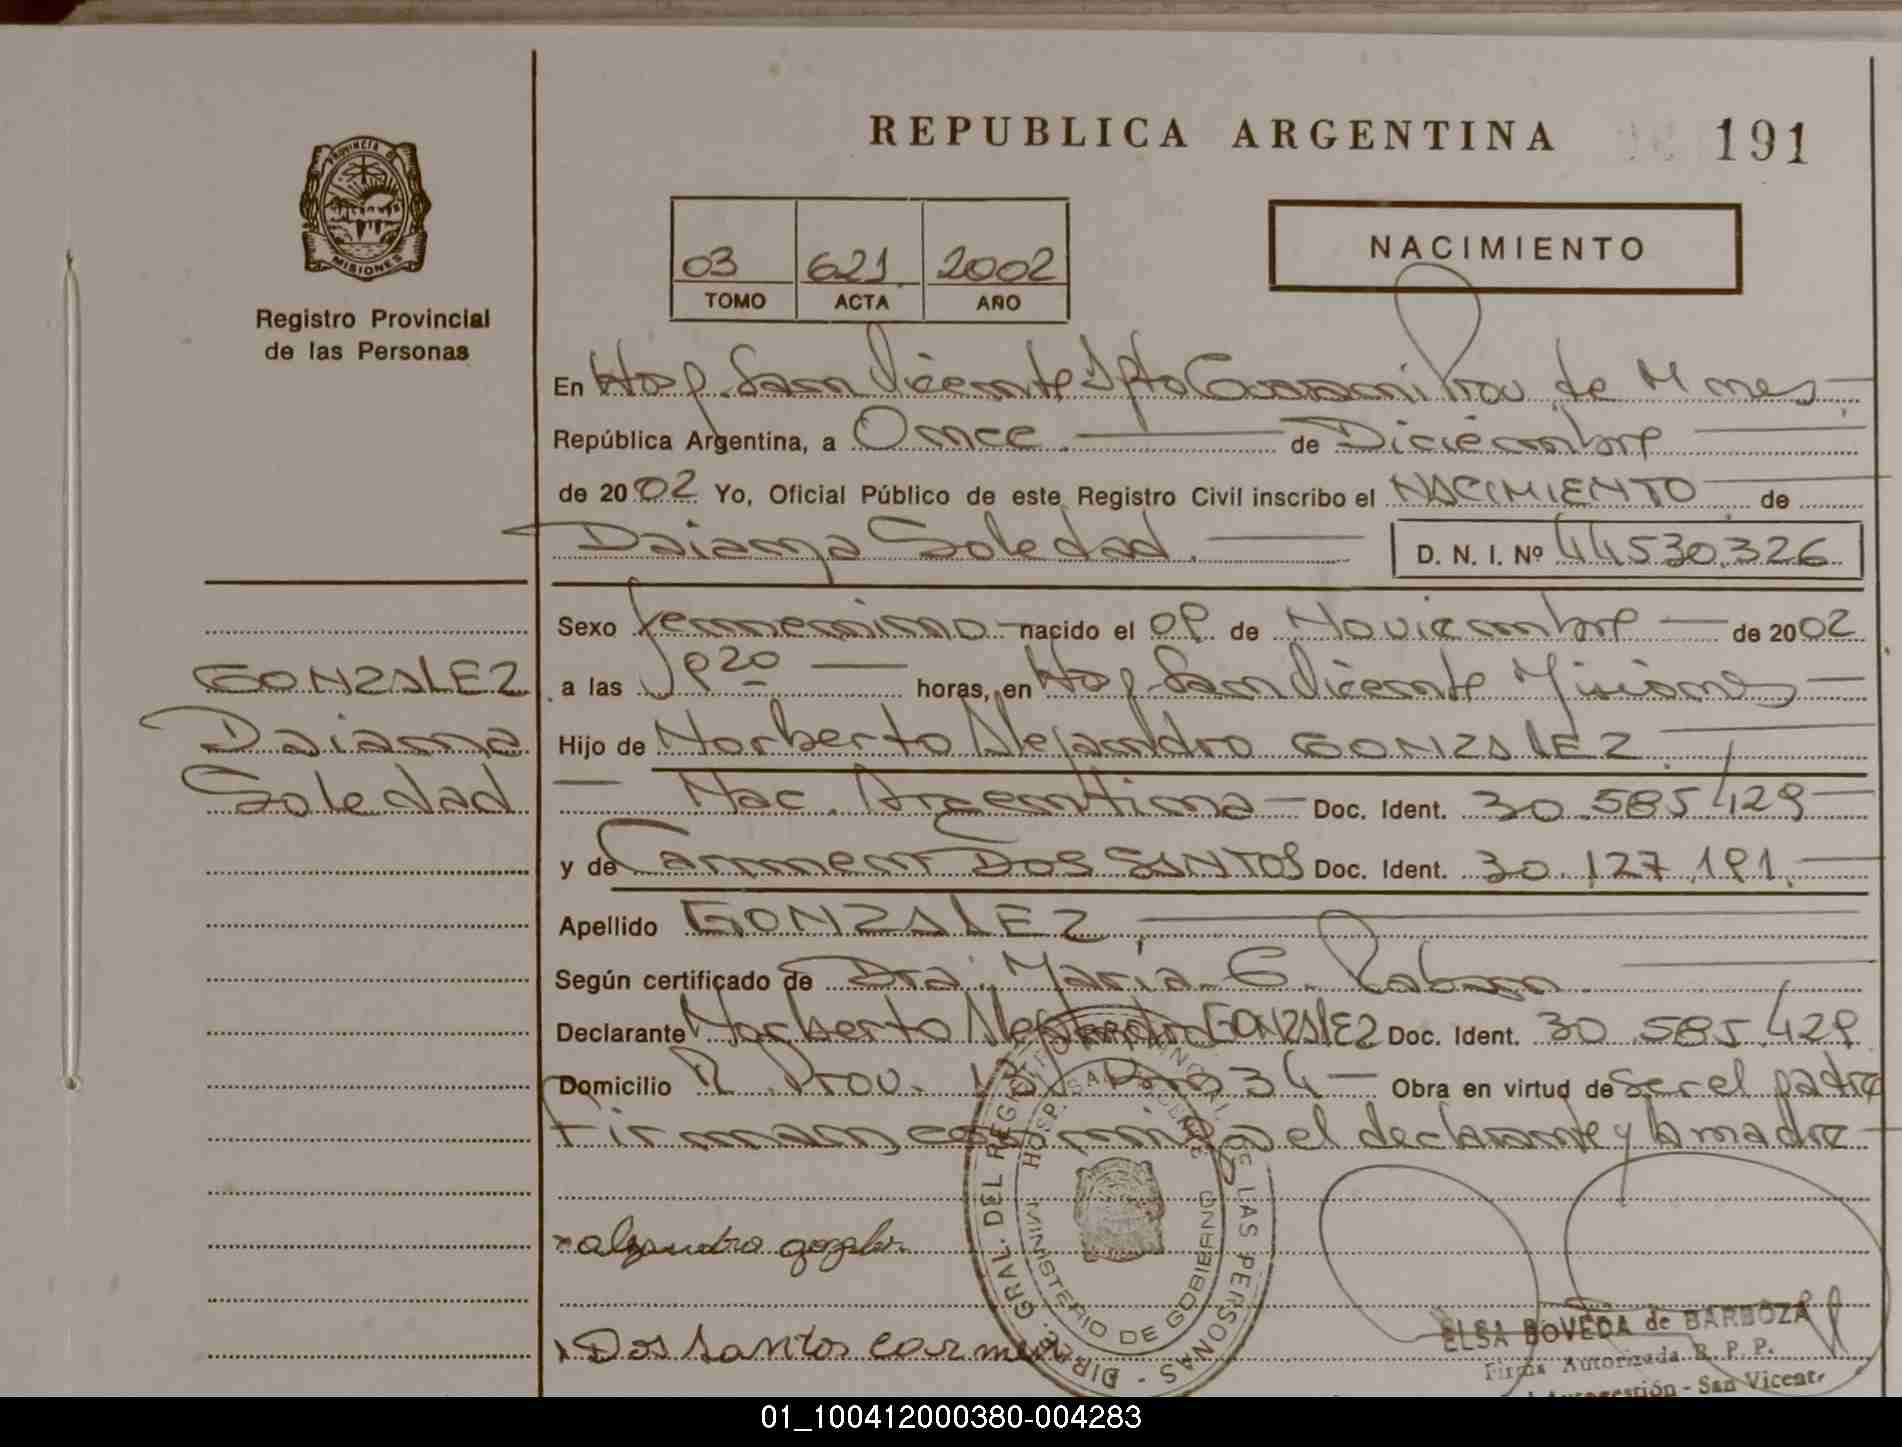 REPUBLICA ARGENTINA
191
PROVINCIA DE
MISIONES
Registro Provincial
de las Personas
03 621 2002
TOMO ACTA AÑO
NACIMIENTO
En Hosp. San Vicente Dpto Guarani Prov de Mnes
República Argentina, a Once de Diciembre
de 2002 Yo, Oficial Público de este Registro Civil inscribo el NACIMIENTO de
Daiana Soledad. D. N. I. Nº 44530.326
Sexo femenino nacido el 09 de Noviembre de 2002
a las horas, en Hosp San Vicente Misiones
Hijo de Norberto Alejandro GONZALEZ
Nac. Argentina Doc. Ident. 30.585.429
y de Carmen DOS SANTOS Doc. Ident. 30.127.191.
Apellido GONZALEZ.
Según certificado de Dra. María E.
Declarante Norberto Alejandro GONZALEZ Doc. Ident. 30.585.429
Domicilio R. Prov. 34 Obra en virtud de ser el padre
Firman conmigo el declarante y la madre
GONZALEZ
Daiana
Soledad
alejandro
Dos santos carmen
DIREC. GRAL. DEL REGISTRO PROVINCIAL DE LAS PERSONAS
HOSP. SAN VICENTE
MINISTERIO DE GOBIERNO
ELSA BOVEDA de BARBOZA
Firma Autorizada R. P. P.
Autogestión - San Vicente
01_100412000380-004283